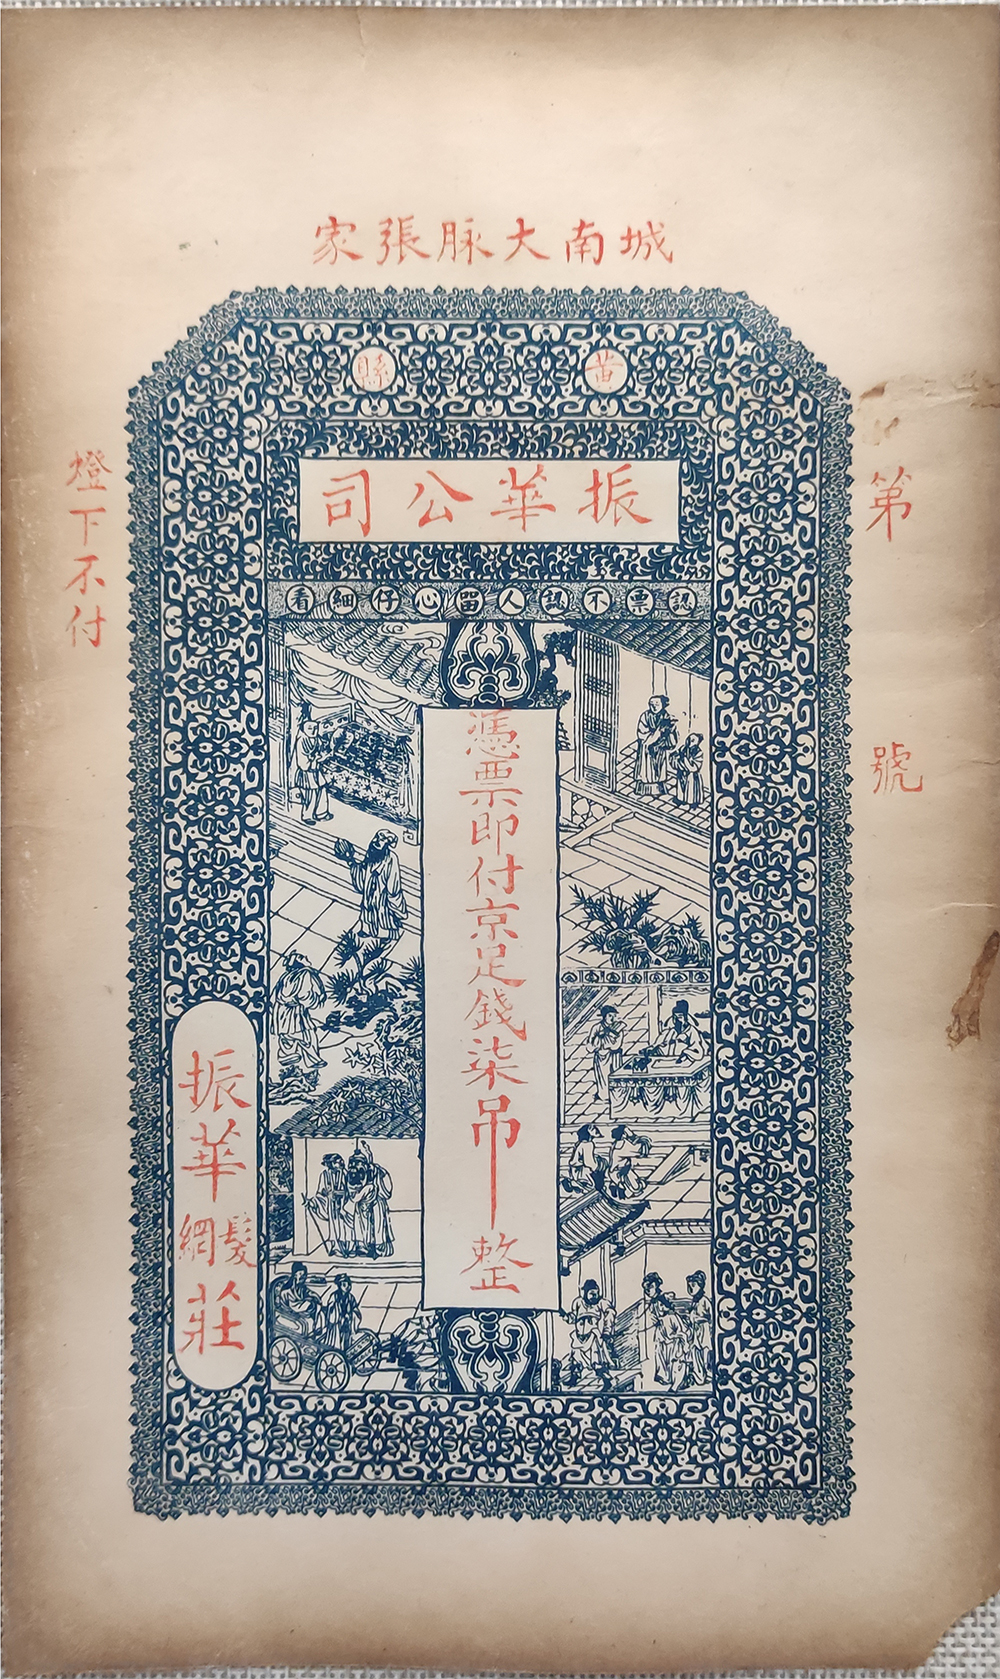 城南大脉張家
黃縣
振華公司
認票不認人留心仔細看
第 號
憑票即付京足錢柒吊整
燈下不付
振華髮網莊